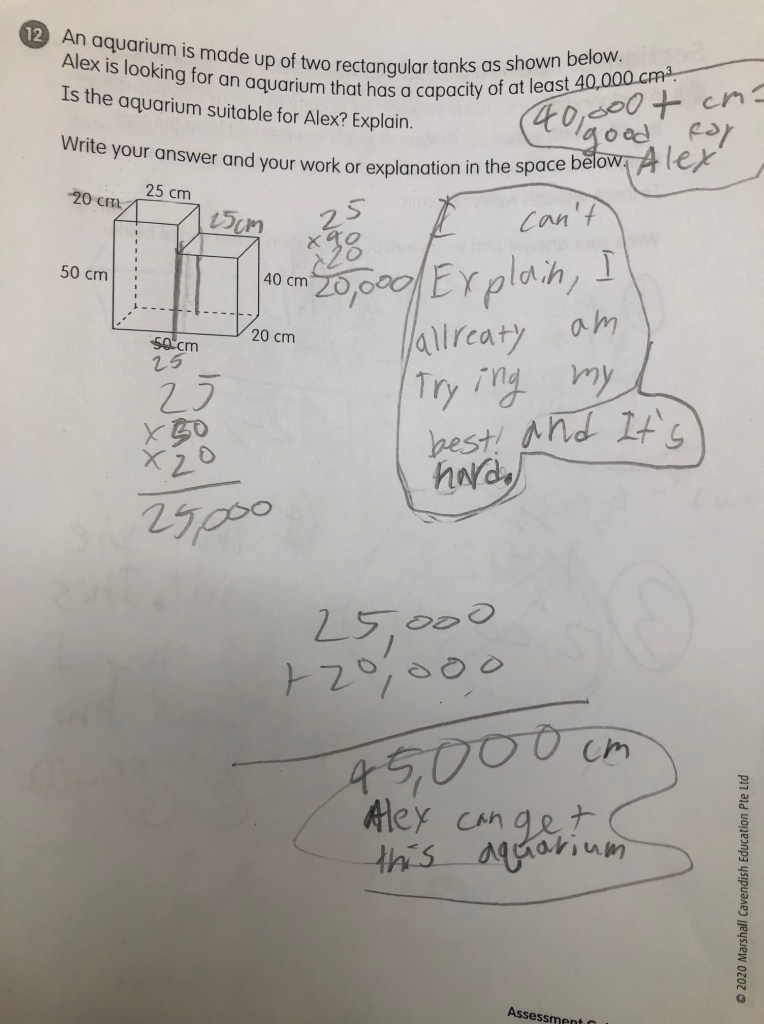 12 An aquarium is made up of two rectangular tanks as shown below.
Alex is looking for an aquarium that has a capacity of at least 40,000 cm³.
Is the aquarium suitable for Alex? Explain.
40,000 + cm³
good for
Alex
Write your answer and your work or explanation in the space below.
20 cm
25 cm
25cm
50 cm
40 cm
20 cm
50 cm
25
25
x 40
x 20
20,000
I can't
Explain, I
allreaty am
Trying my
best! and It's
hard.
25
x 50
x 20
25,000
25,000
+20,000
45,000 cm
Alex can get
this aquarium
© 2020 Marshall Cavendish Education Pte Ltd
Assessment